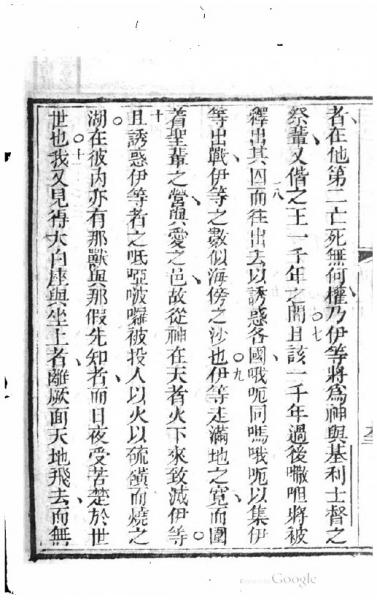 者在他第二亡死無何權乃伊等將爲神與基利士督之
七
祭輩又偕之王一千年之間且該一千年過後𠹌呾將被
八
釋出其囚而往出去以誘惑各國哦呃同嗎哦呃以集伊
等出戰伊等之數似海傍之沙也伊等走滿地之寬而圍
九
着聖輩之營與愛之邑故從神在天者火下來致滅伊等
十
且誘惑伊等者之呧啞啵囉被投人以火以硫磺而燒之
湖在彼內亦有那獸與那假先知者而日夜受苦楚於世
世也我又見得大白座與坐上者離厥面天地飛去而無
十一
Google